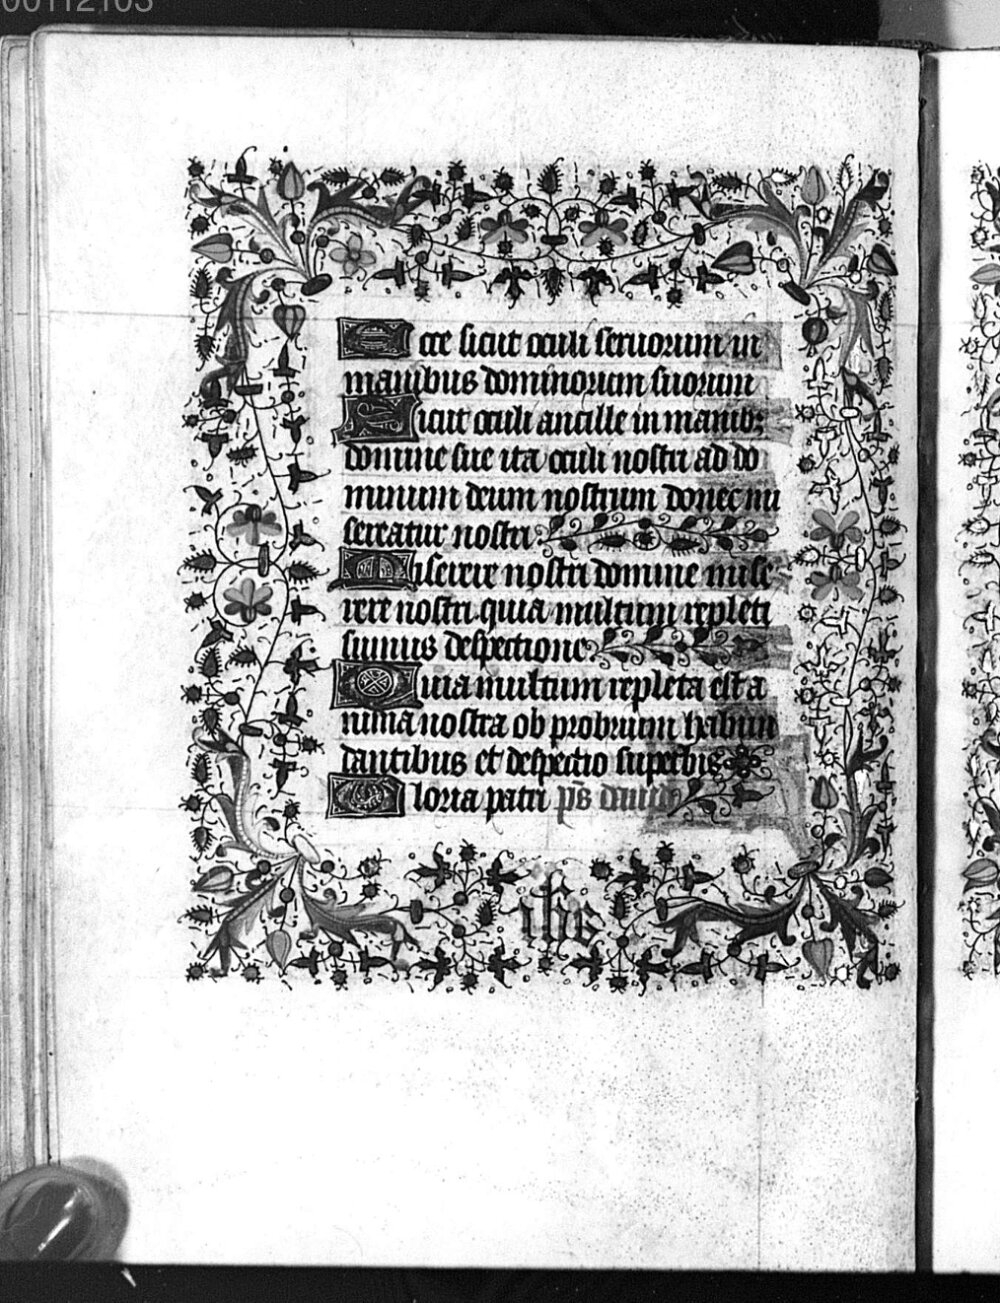 00112103
Ecce sicut oculi seruorum in
manibus dominorum suorum
Sicut oculi ancille in manib;
domine sue ita oculi nostri ad do
minum deum nostrum donec mi
sereatur nostri
Miserere nostri domine mise
rere nostri quia multum repleti
sumus despectione
Quia multum repleta est a
nima nostra ob probrium habun
dantibus et despectio superbis
Gloria patri ps̄ dauid
ihs